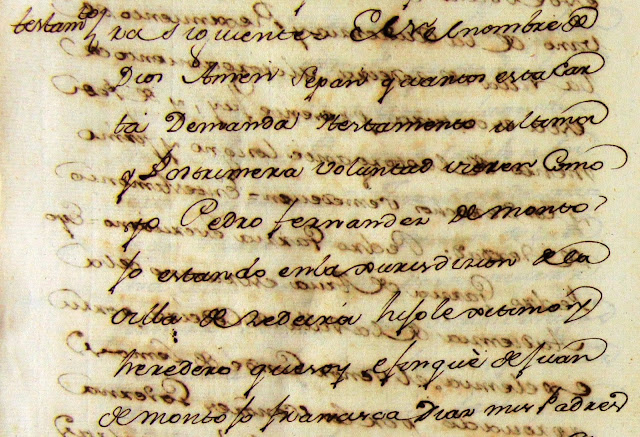 testam^to y va siguiente En el nombre de
Dios Amen Sepan quantos esta Car
ta Demanda testamento ultima
y Postrimera Voluntad vieren Como
yo Pedro fernandez de monto
so estando en la xurisdizion de la
villa de hijo lexitimo y
heredero que soy e finquè de Juan
de montoso francisca Diaz mis Padres